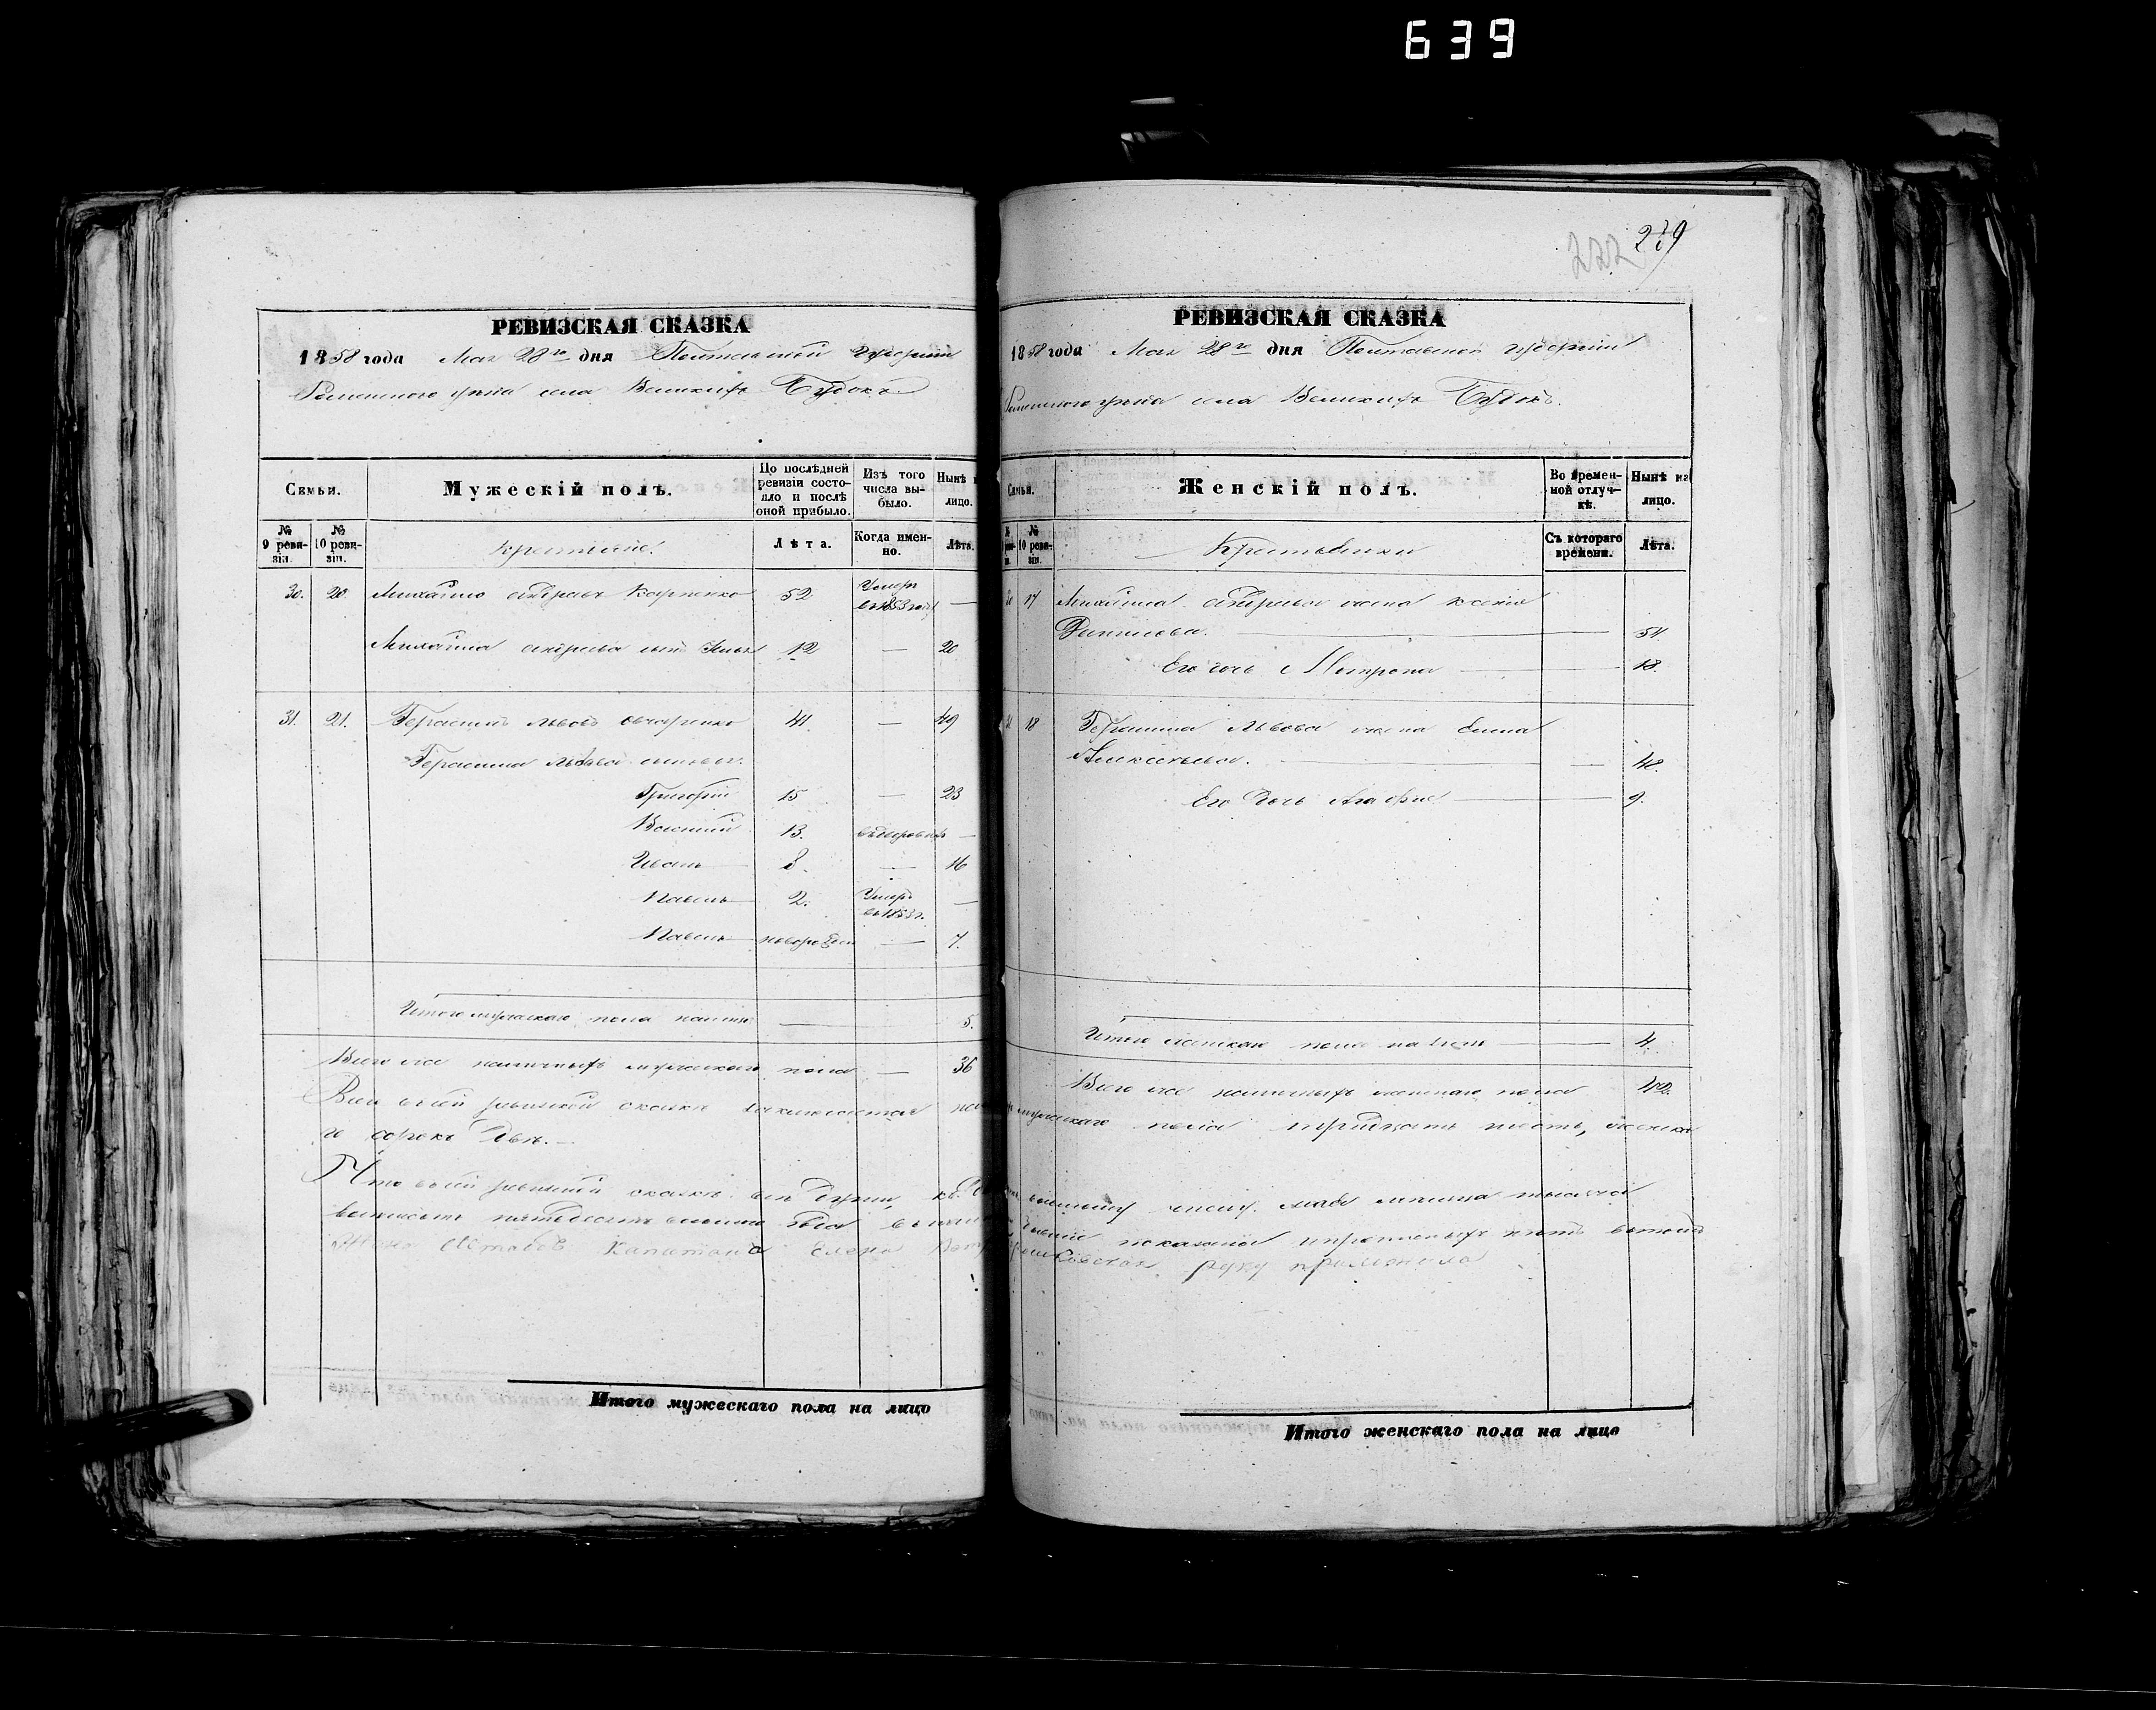 639
222 229
РЕВИЗСКАЯ СКАЗКА
1858 года Мая 28го дня Полтавской Губернии
Роменского уезда села Великихъ Будокъ
Семьи.
Мужескій полъ.
По послѣдней ревизіи состояло и послѣ оной прибыло.
Изъ того числа выбыло.
Нынѣ на лицо.
№ 9 ревизіи.
№ 10 ревизіи.
Крестьяне.
Лѣта.
Когда именно.
Лѣта.
30. 20. Михайло Андреевъ Карпенко 52 Умеръ въ 1853 году —
Михайла Андреева сынъ 12 — 20
31. 21. Герасимъ Львовъ Овчаренко 41 — 49
Герасима Львова сыновья.
Григорій 15 — 23
Василий 13. —
Иванъ 8. — 16
Павелъ 2. Умеръ въ 1853 г. —
Павелъ новорожден — 7.
Итого мужескаго пола налицо — 5.
Всего же наличныхъ мужескаго пола — 36
Всего въ сей ревизской сказке заключается
го сорокъ две. —
Что въ сей ревизской сказке все души, къ
восемьсотъ пятьдесятъ восьмого года
Жена Капитана Елена
Итого мужескаго пола на лицо
РЕВИЗСКАЯ СКАЗКА
1858 года Мая 28го дня Полтавской губернии
Роменского уезда села Великихъ Будокъ.
Семьи.
Женскій полъ.
Во временной отлучкѣ.
Нынѣ на лицо.
№ 10 ревизіи.
Крестьянки
Съ котораго времени.
Лѣта.
30 17 Михайла Андреева жена Ксенія
— 54.
Его дочь Мотрона — 18.
31 18 Герасима Львова жена Елена
Алексеева. — 48.
Его дочь Агафия — 9.
Итого женскаго пола на лицо — 4.
Всего же наличныхъ женскаго пола 42.
мужескаго пола тридцать шесть, женска
числу. мая месяца тысяча
показаны и прописныхъ нетъ въ томъ
руку приложила
Итого женскаго пола на лицо